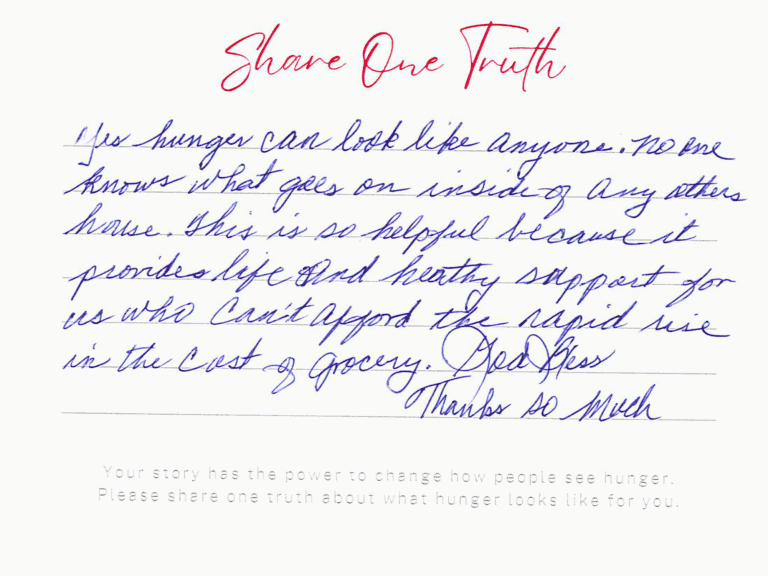 Share One Truth
Yes hunger can look like anyone. No one
knows what goes on inside of any others
house. This is so helpful because it
provides life and heathy support for
us who can't afford the rapid rise
in the cost of grocery. God Bless
Thanks so much
Your story has the power to change how people see hunger.
Please share one truth about what hunger looks like for you.